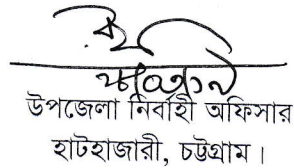 উপজেলা নির্বাহী অফিসার
হাটহাজারী, চট্টগ্রাম।